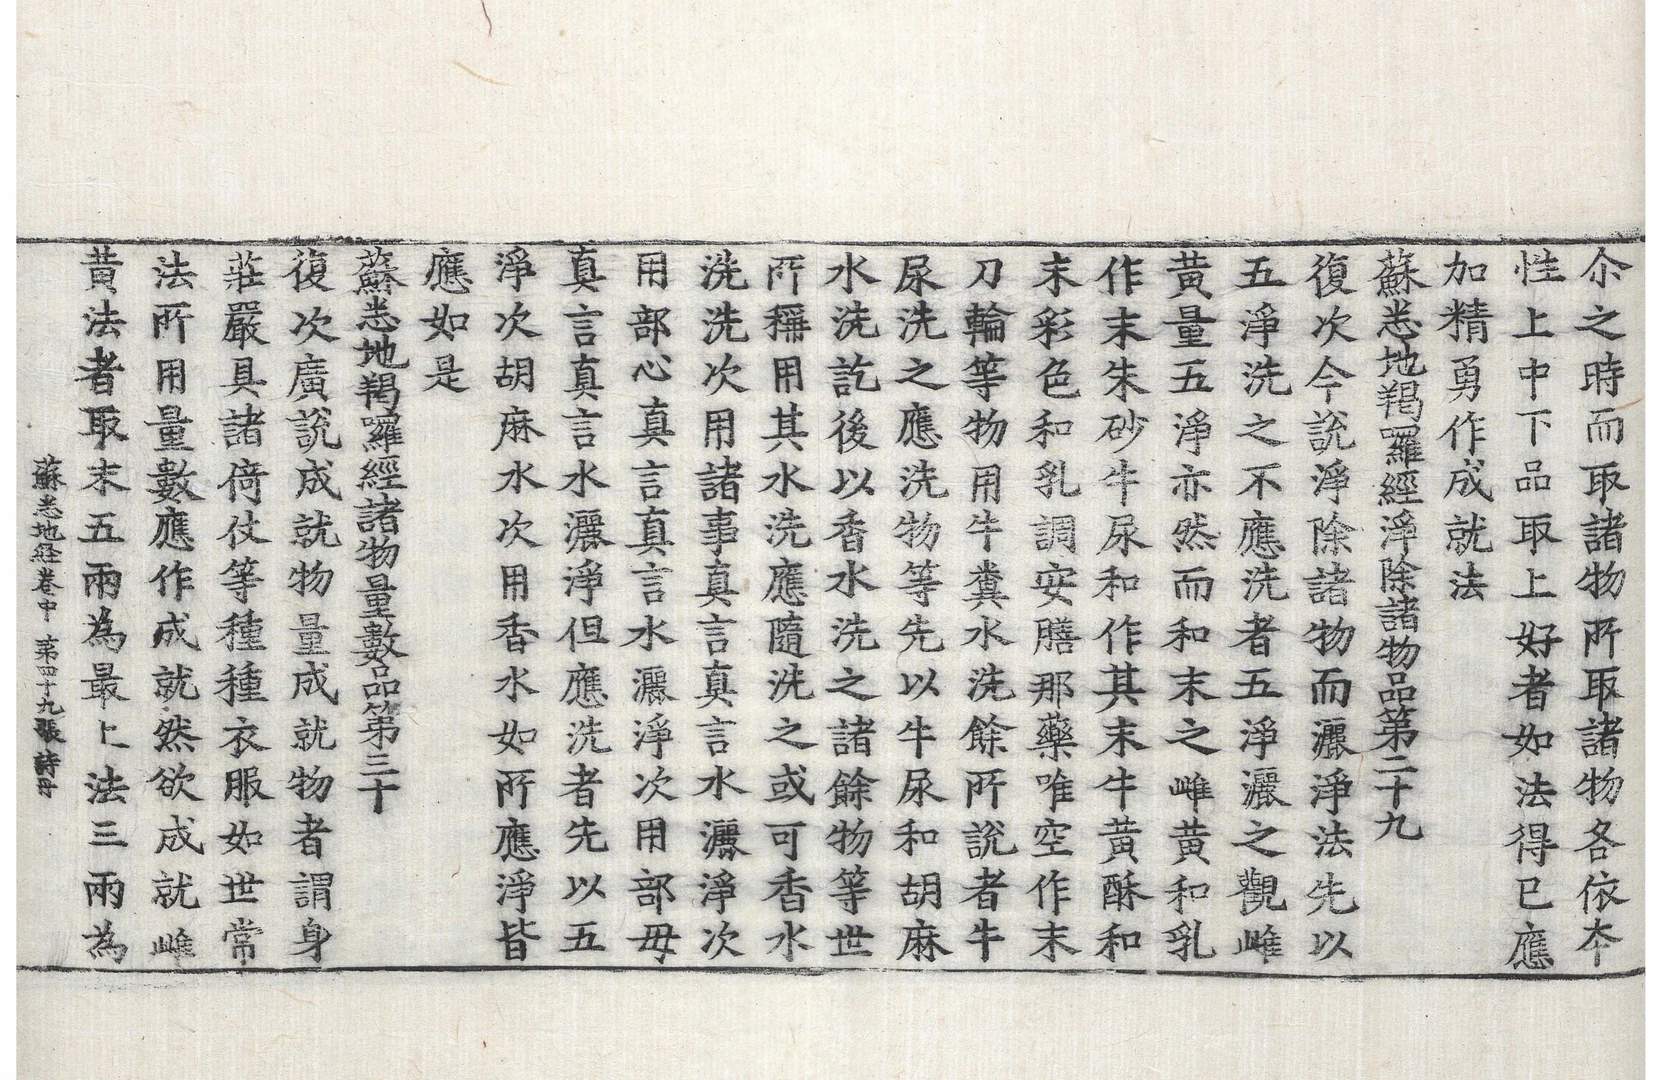 尒之時而取諸物所取諸物各依本
性上中下品取上好者如法得已應
加精勇作成就法
蘇悉地羯囉經淨除諸物品第二十九
復次今說淨除諸物而灑淨法先以
五淨洗之不應洗者五淨灑之觀雌
黃量五淨亦然而和末之雌黃和乳
作末朱砂牛尿和作其末牛黃酥和
末彩色和乳調安膳那藥唯空作末
刀輪等物用牛糞水洗餘所說者牛
尿洗之應洗物等先以牛尿和胡麻
水洗訖後以香水洗之諸餘物等世
所稱用其水洗應隨洗之或可香水
洗洗次用諸事真言真言水灑淨次
用部心真言真言水灑淨次用部母
真言真言水灑淨但應洗者先以五
淨次胡麻水次用香水如所應淨皆
應如是
蘇悉地羯囉經諸物量數品第三十
復次廣說成就物量成就物者謂身
莊嚴具諸倚仗等種種衣服如世常
法所用量數應作成就然欲成就雌
黃法者取末五兩為最上法三兩為
蘇悉地経卷中 第四十九張 詩毋